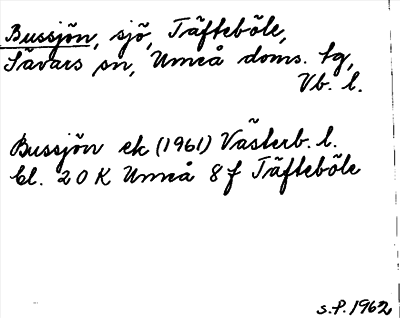 Bussjön, sjö, Täfteböle,
Sävars sn, Umeå doms. tg,
Vb. l.
Bussjön ek (1961) Västerb. l.
bl. 20 K Umeå 8 f Täfteböle
s.f. 1962